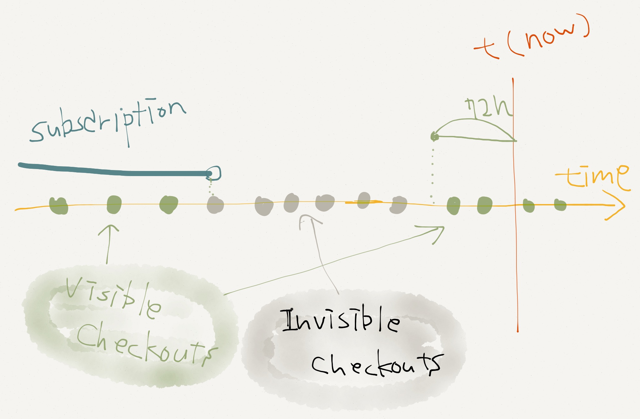 t (now)
72h
subscription
time
Visible
Checkouts
Invisible
Checkouts